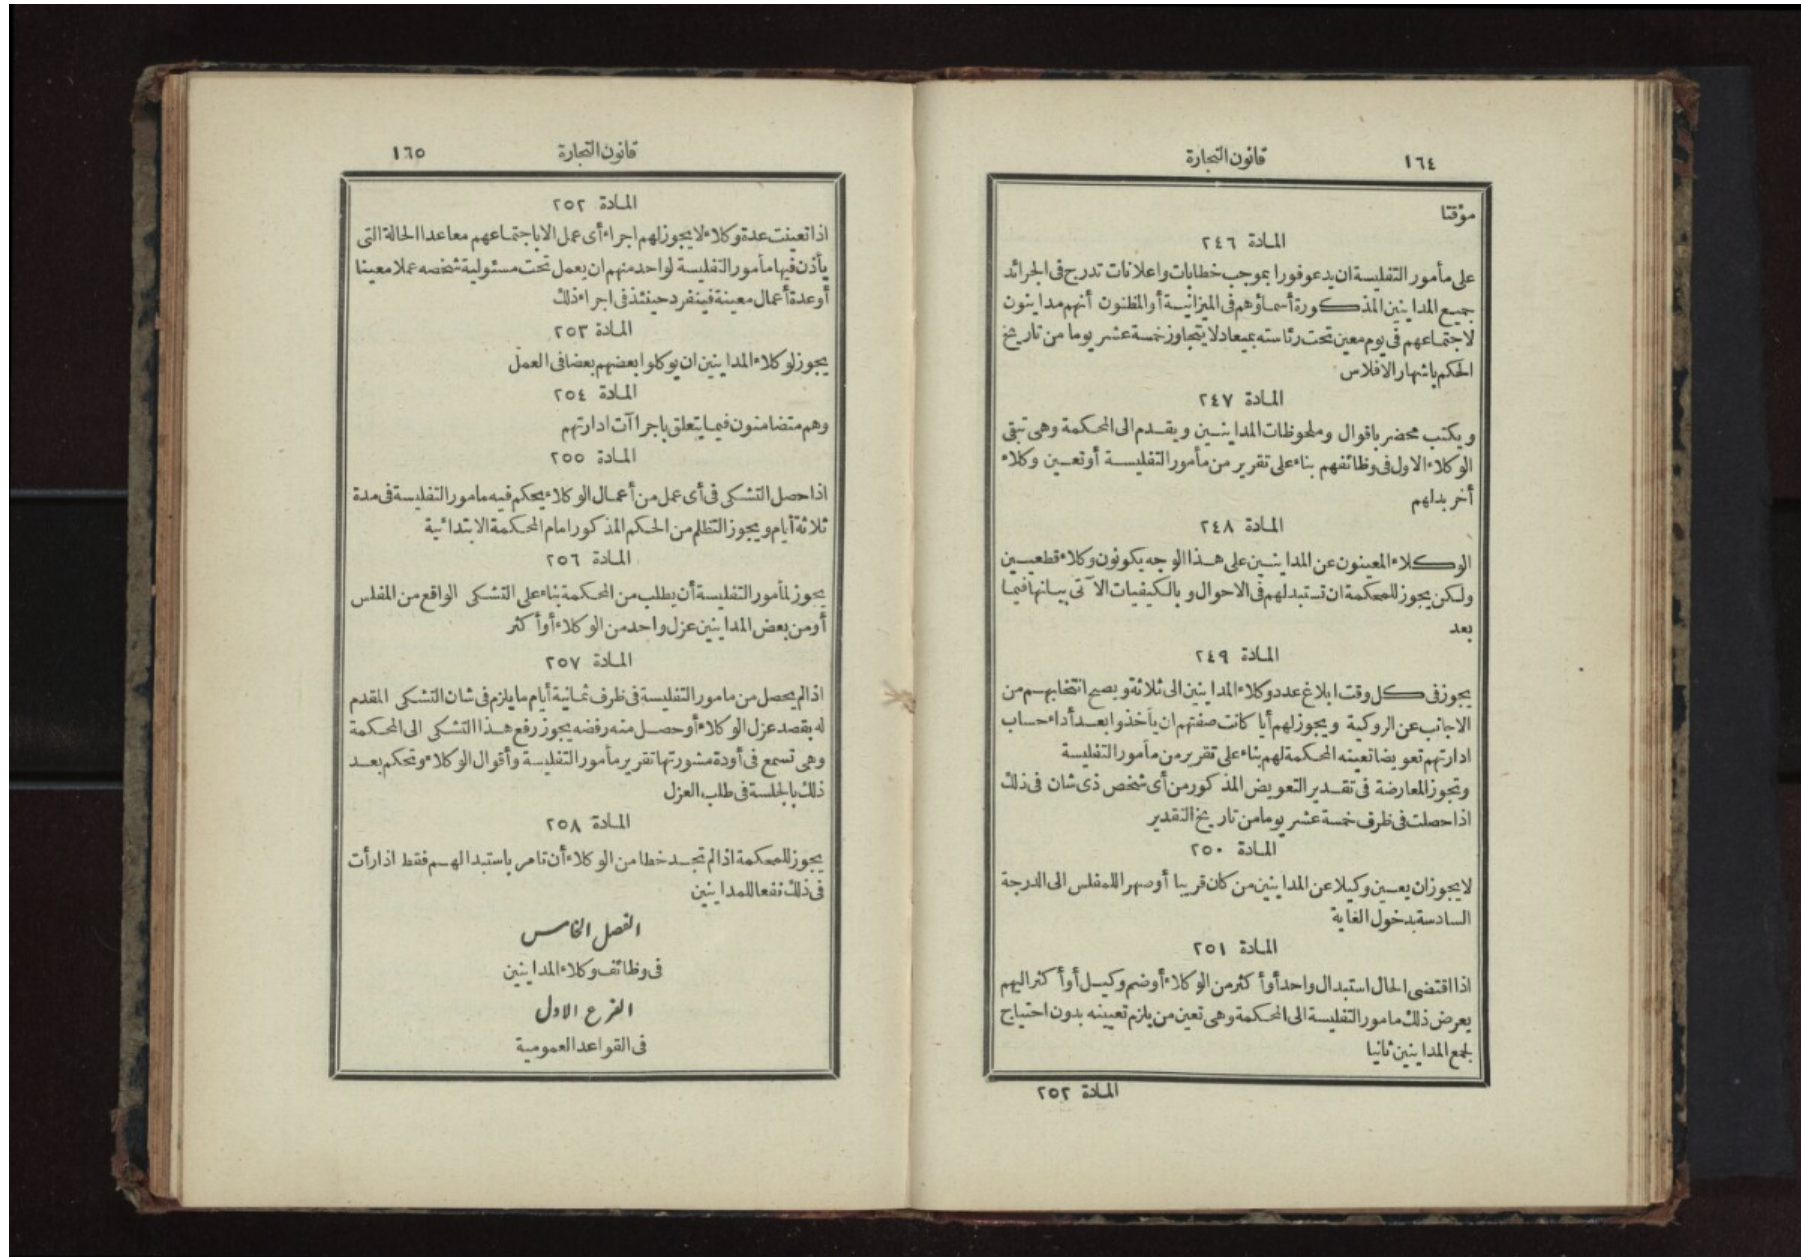 ١٦٤
قانون التجارة
موقتا
المادة ٢٤٦
على مأمور التفليسة ان يدعو فورا بموجب خطابات واعلانات تدرج فى الجرائد
جميع المداينين المذكورة أسماؤهم فى الميزانية أو المظنون أنهم مداينون
لاجتماعهم فى يوم معين تحت رئاسته بميعاد لا يتجاوز خمسة عشر يوما من تاريخ
الحكم باشهار الافلاس
المادة ٢٤٧
ويكتب محضر باقوال وملحوظات المداينين ويقدم الى المحكمة وهى تبقى
الوكلاء الاول فى وظائفهم بناء على تقرير من مأمور التفليسة أو تعين وكلاء
أخر بدلهم
المادة ٢٤٨
الوكلاء المعينون عن المداينين على هذا الوجه يكونون وكلاء قطعيين
ولكن يجوز للمحكمة ان تستبدلهم فى الاحوال وبالكيفيات الآتى بيانها فيما
بعد
المادة ٢٤٩
يجوز فى كل وقت ابلاغ عدد وكلاء المداينين الى ثلاثة ويصح انتخابهم من
الاجانب عن الروكية ويجوز لهم أيا كانت صفتهم ان يأخذوا بعد أداء حساب
ادارتهم تعويضا تعينه المحكمة لهم بناء على تقرير من مأمور التفليسة
وتجوز المعارضة فى تقدير التعويض المذكور من أى شخص ذى شان فى ذلك
اذا حصلت فى ظرف خمسة عشر يوما من تاريخ التقدير
المادة ٢٥٠
لا يجوز ان يعين وكيلا عن المداينين من كان قريبا أو صهرا للمفلس الى الدرجة
السادسة بدخول الغاية
المادة ٢٥١
اذا اقتضى الحال استبدال واحد أو أكثر من الوكلاء أو ضم وكيل أو أكثر اليهم
يعرض ذلك مامور التفليسة الى المحكمة وهى تعين من يلزم تعيينه بدون احتياج
لجمع المداينين ثانيا
المادة ٢٥٢
قانون التجارة
١٦٥
المادة ٢٥٢
اذا تعينت عدة وكلاء لا يجوز لهم اجراء أى عمل الا باجتماعهم معا عدا الحالة التى
يأذن فيها مأمور التفليسة لواحد منهم ان يعمل تحت مسئولية شخصه عملا معينا
أو عدة أعمال معينة فينفرد حينئذ فى اجراء ذلك
المادة ٢٥٣
يجوز لوكلاء المداينين ان يوكلوا بعضهم بعضا فى العمل
المادة ٢٥٤
وهم متضامنون فيما يتعلق باجراآت ادارتهم
المادة ٢٥٥
اذا حصل التشكى فى أى عمل من أعمال الوكلاء يحكم فيه مامور التفليسة فى مدة
ثلاثة أيام ويجوز التظلم من الحكم المذكور امام المحكمة الابتدائية
المادة ٢٥٦
يجوز لمأمور التفليسة أن يطلب من المحكمة بناء على التشكى الواقع من المفلس
أو من بعض المداينين عزل واحد من الوكلاء أو أكثر
المادة ٢٥٧
اذا لم يحصل من مامور التفليسة فى ظرف ثمانية أيام ما يلزم فى شان التشكى المقدم
له بقصد عزل الوكلاء أو حصل منه رفضه يجوز رفع هذا التشكى الى المحكمة
وهى تسمع فى أودة مشورتها تقرير مأمور التفليسة وأقوال الوكلاء وتحكم بعد
ذلك بالجلسة فى طلب العزل
المادة ٢٥٨
يجوز للمحكمة اذا لم تجد خطا من الوكلاء أن تامر باستبدالهم فقط اذا رأت
فى ذلك نفعا للمداينين
الفصل الخامس
فى وظائف وكلاء المداينين
الفرع الاول
فى القواعد العمومية